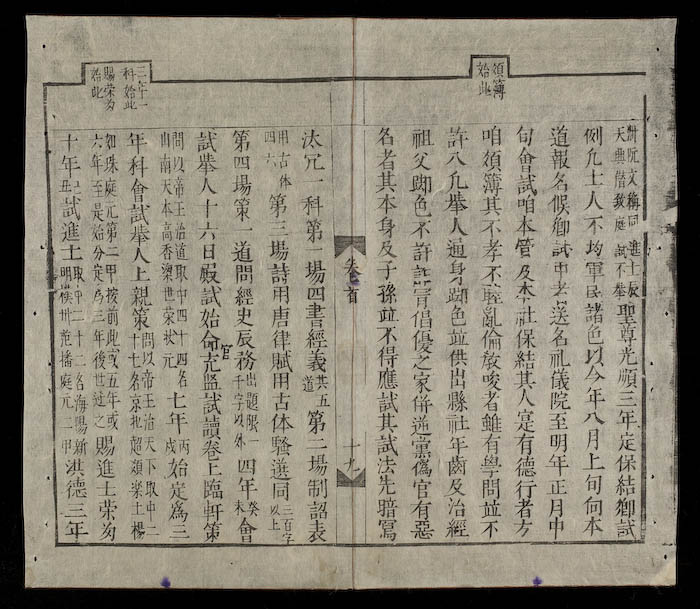 領簿
始此
阮文稱同進士辰
天典僭教庭試不舉
聖尊光順三年定保結鄉試
例凡士人不均軍民諸色以今年八月上旬向本
道報名候鄉試中者送名礼儀院至明年正月中
旬會試咱本管及本社保結其人寔有德行者方
咱領簿其不孝不睦亂倫教唆者雖有學問並不
許入凡舉人通身脚色並供出縣社年齒及治經
祖父脚色不許詐冒倡優之家併逆黨偽官有惡
名者其本身及子孫並不得應試其試法先暗寫
卷首
十九
三年一
科始此
賜荣为
始此
汰冗一科第一場四書經義共五道第二場制詔表
用古体四六第三場詩用唐律賦用古体騷選同三百字以上
第四場策一道問經史辰務出題限一千字以外四年癸未會
試舉人十六日殿試始命充監試讀卷官上臨軒策
問以帝王治道取中四十四名山南天本高香梁世荣狀元七年丙戌始定為三
年科會試舉人上親策問以帝王治天下取中二十七名京北超類楽土楊
如珠庭元第二甲按前此或五年或六年至是始分定為三年後世遵之賜進士荣为
十年己丑試進士取中二十二名海陽新明樸州范播庭元二甲洪德三年